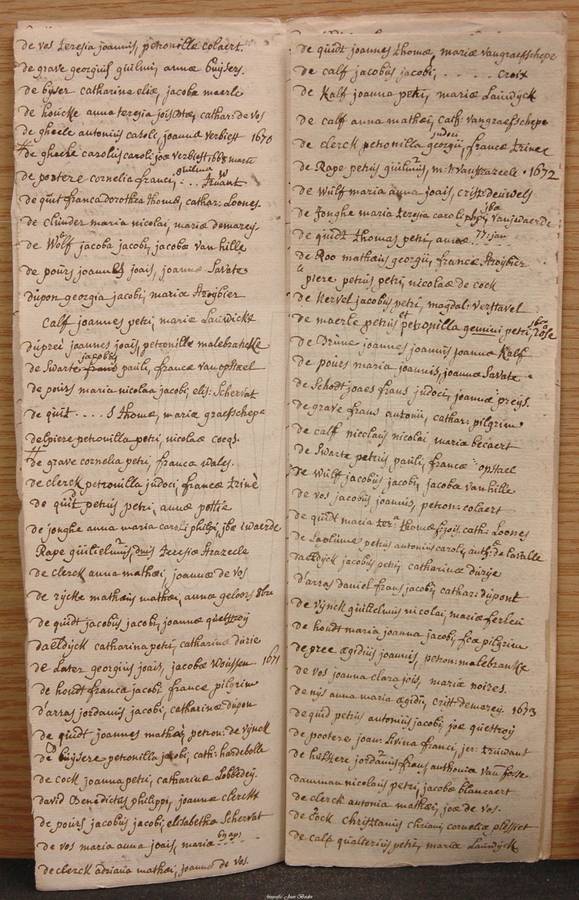 de vos teresia joannis, petronillæ colaert.
de grave georgius guilmi, annæ buijsers.
de bijser catharina eliæ, jacobæ meerle
de houcke anna teresia joistæ, cathar: de vos
de gheele antonius caroli, joannæ verbiest 1670
de gheele carolus caroli, joæ verbiest
de pootere cornelia franci,
de quit franca dorothea thomæ, cathar: Loones
de clunder maria nicolai, mariæ demarey.
de Wolf jacoba jacobi, jacobæ van hille
de pours joannes joais, joannæ Savate
dupon georgia jacobi, mariæ stroijbier
calf joannes petri, mariæ Lauwickx
duprei joannes joais, petronillæ malebrancke
de Swarte jacobus pauli, francæ van opstael
de pours maria nicolaa jacobi, elis: Schervat
de quit .... S thomæ, mariæ graefschepe
delpiere petronilla petri, nicolaæ cocqs.
de grave cornelia petri, franca wales.
de clerck petronilla judoci, francæ trinè
de quit petrus petri, annæ pottie
de jonghe anna maria caroli philipi, jbæ iwaerde
Rape guilielmus, teresiæ strazeele
de clerck anna mathæi, joannæ de vos
de rijcke mathæus mathæi, anna geloors 8bri
de quidt jacobus jacobi, joannæ quettroij
daeldijck catharina petri, catharinæ durie
de Later georgius joais, jacobæ vloissen 1671
de houdt franca jacobi, francæ pilgrim
d'arras jordanus jacobi, catharinæ dupon
de quidt joannes mathæi, petron: de vijnck
de buijsere petronilla jacobi, cath: hardebolle
de cock joanna petri, catharinæ Lobbedeij.
david Benedictus philippi, joannæ clerck
de pours jacobus jacobi, elisabetha Schervat
de vos maria anna joais, mariæ
de clerck adriana mathæi, joannæ de vos.
de quidt joannes thomæ, mariæ van graefschepe
de calf jacobus jacobi, . . . . . croix
de Kalf joanna petri, mariæ Lauwijck
de calf anna mathæi, cath: vangraefschepe
de clerck petronilla georgii, francæ trinee
de Rape petrus guilmus, m: t: van strazeele . 1672
de Wulf maria anna joais, crist: deuwels
de Jonghe maria teresia caroli, vanjwaerde
de quidt thomas petri, annæ
de Roo mathæus georgii, francæ stroijbier
piere petrus petri, nicolaæ de cock
de Kervel jacobus petri, magdal: verstavel
de maerle petrus et petronilla gemini petri, rose
de Drunc joannes joannis joannæ Kalf
de pours maria joannis, joannæ Savate
de Schodt joaes frans judoci, joannæ preijs.
de grave frans antonii, cathar: pilgrim
de calf nicolaus nicolai mariæ becaert
de Swarte petrus pauli, francæ opstael
de Wulf jacobus jacobi, jacoba van hille
de vos jacobus joannis, petron: colaert
de quidt maria ter: thomæ, cath: Loones
de Laolune petrus antonius caroli, anth: de la salle
daeldijck jacobus petri, catharinæ durije
d'arras daniel frans jacobi, cathar: dupont
de Vijnck guilielmus nicolai, mariæ ferleu
de houdt maria joanna jacobi, fcæ pilgrim
de pree ægidius joannis, petron: malebrancke
de vos joanna clara joais, mariæ noires.
de nijs anna maria ægidii, crist: demareij. 1673
de quid petrus antonius jacobi, joæ quettroij
de pootere joan: Livina franci, jer: struwant
de hekkere jordanus frans anthonia van fosse
damman nicolaus petri, jacobæ blancaert
de clerck antonia mathæi, joæ de vos.
de Cock christianus chriani, corneliæ plessiet
de calf qualterius petri, mariæ Lauwijck